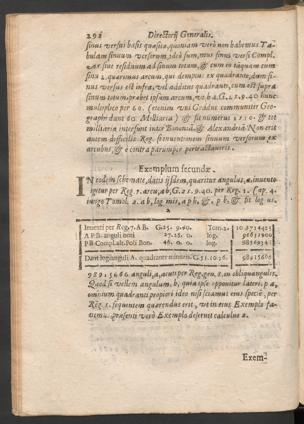 292 Directorij Generalis.
sinus versus basis quæsitæ, quoniam verò non habemus Ta-
bulam sinuum versorum, ideò sum, mus sinus versi Compl.
ear sue residuum ad sinum totum, & cum eo tanquam cum
sinu 2. quærimus arcum, qui demptus ex quadrante, dum si-
nus versus est infra, vel additus quadranti, cum est supra
sinum totum, præbet ipsum arcum, vo b A, G. 21. 9. 40 hunc
multiplico per 60. (etenim vni Gradui communiter Geo-
graphi dant 60. Milliaria) & sic numerus 1270. & tot
milliaria intersunt inter Bononiā, & Alexandriā. Non erit
autem difficilis Reg. sequentem sinuum versorum ex
arcubus, & è contra parumper pertractaueris.
Exemplum secundæ.
IN eodem schemate, datis ijsdem, quæritur angulus, a, inuento
igitur per Reg. 7. arcu, ab, G. 21. 9. 40. per Reg. 1. Cap. 4.
iungo Tomol. 2. a b, log. mis, a p b, &, p b, & fit log. us.
2
Inuenti per Reg. 7. A B. G. 21. 9. 40. Tom. 2.
A P B. anguli noti 27. 15. 0. log. 96651900
P B Compl. alt. Poli Bon. 46. 0. 0. log. 98569341
Dant log. anguli A. quadrante minoris. G. 51. 10. 26.
989.5660. anguli, a, acuti per Reg. gen. 2. in obliquangulis.
Quod si vellem angulum, b, quia ipse opponitur lateri, p a,
omnium quadranti propiori ideo nisi sciamus eius specie, per
Reg. 2. sequentem quærendus erit, vt in eius Exemplo fa-
ciemus. præsenti verò Exemplo deseruit calculus 2.
Exem-